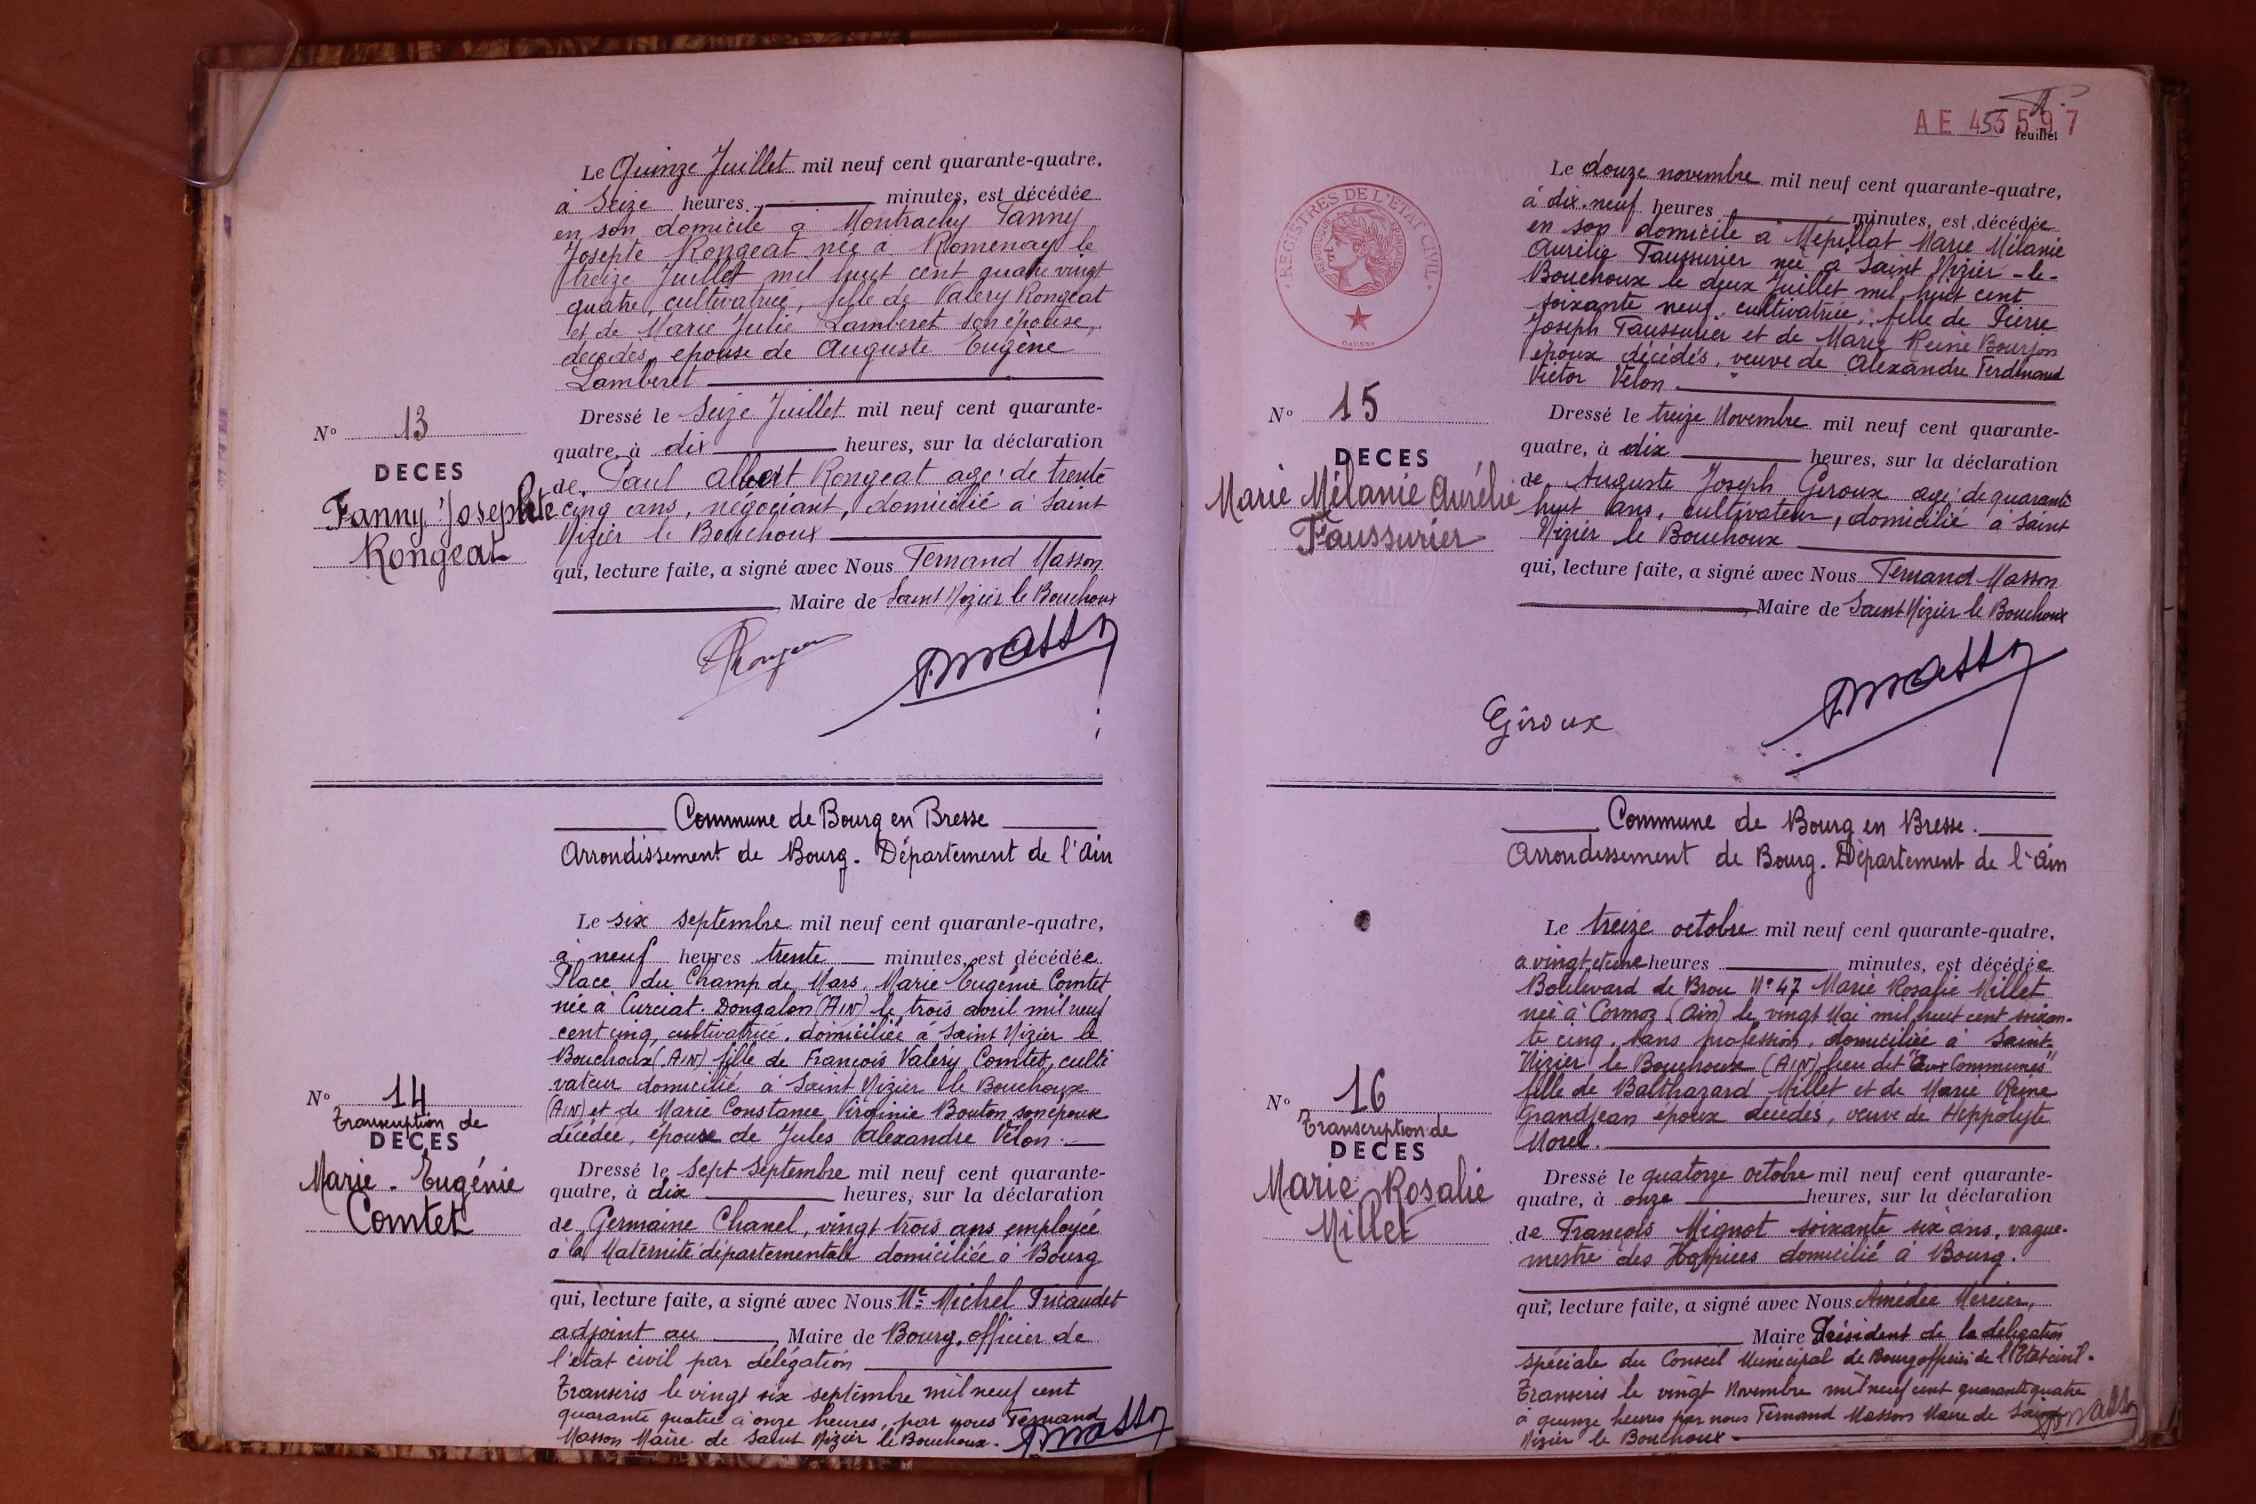 Le Quinze Juillet mil neuf cent quarante-quatre.
à Seize heures minutes, est décédée
en son domicile à Montrachy Fanny
Josepte Rongeat née à Romenay le
treize Juillet mil huit cent quatre vingt
quatre, cultivatrice, fille de Valery Rongeat
et de Marie Julie Lamberet son épouse,
décédés, épouse de Auguste Eugène
Lamberet
N° 13
DECES
Fanny Josephte
Rongeat
Dressé le Seize Juillet mil neuf cent quarante-
quatre, à dix heures, sur la déclaration
de Paul Albert Rongeat agé de trente
cinq ans, négociant, domicilié à Saint
Nizier le Bouchoux
qui, lecture faite, a signé avec Nous Fernand Masson
, Maire de Saint Nizier le Bouchoux
Masson
Commune de Bourg en Bresse
Arrondissement de Bourg. Département de l'Ain
Le six septembre mil neuf cent quarante-quatre,
à neuf heures trente minutes, est décédée
Place du Champ de Mars, Marie Eugénie Comtet
née à Curciat-Dongalon (AIN) le trois avril mil neuf
cent cinq, cultivatrice, domiciliée à Saint Nizier le
Bouchoux (AIN) fille de François Valéry Comtet, culti
vateur domicilié à Saint Nizier le Bouchoux
(AIN) et de Marie Constance Virginie Bouton son épouse
décédée, épouse de Jules Alexandre Velon.
N° 14
Transcription de
DECES
Marie-Eugénie
Comtet
Dressé le sept septembre mil neuf cent quarante-
quatre, à dix heures, sur la déclaration
de Germaine Chanel, vingt trois ans employée
à la Maternité départementale domiciliée à Bourg
qui, lecture faite, a signé avec Nous Mr Michel Tricaudet
adjoint au , Maire de Bourg, officier de
l'état civil par délégation
Transcris le vingt six septembre mil neuf cent
quarante quatre à onze heures, par nous Fernand
Masson Maire de Saint Nizier le Bouchoux. Masson
AE 43597
feuillet
REGISTRES DE L'ETAT CIVIL
Le douze novembre mil neuf cent quarante-quatre,
à dix-neuf heures minutes, est décédée
en son domicile à Mépillat Marie Mélanie
Aurélie Faussurier née à Saint Nizier-le-
Bouchoux le deux Juillet mil huit cent
soixante neuf, cultivatrice, fille de Pierre
Joseph Faussurier et de Marie Reine Bourjon
époux décédés, veuve de Alexandre Ferdinand
Victor Velon.
N° 15
DECES
Marie Mélanie Aurélie
Faussurier
Dressé le treize Novembre mil neuf cent quarante-
quatre, à dix heures, sur la déclaration
de Auguste Joseph Giroux agé de quarante
huit ans, cultivateur, domicilié à Saint
Nizier le Bouchoux
qui, lecture faite, a signé avec Nous Fernand Masson
, Maire de Saint Nizier le Bouchoux
Giroux
Masson
Commune de Bourg en Bresse.
Arrondissement de Bourg. Département de l'Ain
Le treize octobre mil neuf cent quarante-quatre,
à vingt et une heures minutes, est décédée
Boulevard de Brou N° 47 Marie Rosalie Millet
née à Cormoz (Ain) le vingt Mai mil huit cent soixan-
te cinq, sans profession, domiciliée à Saint-
Nizier le Bouchoux (AIN) lieu dit "Aux Communes"
fille de Balthazard Millet et de Marie Reine
Grandjean époux décédés, veuve de Hippolyte
Morel.
N° 16
Transcription de
DECES
Marie Rosalie
Millet
Dressé le quatorze octobre mil neuf cent quarante-
quatre, à onze heures, sur la déclaration
de François Mignot soixante six ans, vague-
mestre des Hospices domicilié à Bourg.
qui, lecture faite, a signé avec Nous Amédée Mercier,
Maire Président de la délégation
spéciale du Conseil Municipal de Bourg officier de l'Etat civil.
Transcris le vingt Novembre mil neuf cent quarante quatre
à quinze heures par nous Fernand Masson Maire de Saint
Nizier le Bouchoux Masson